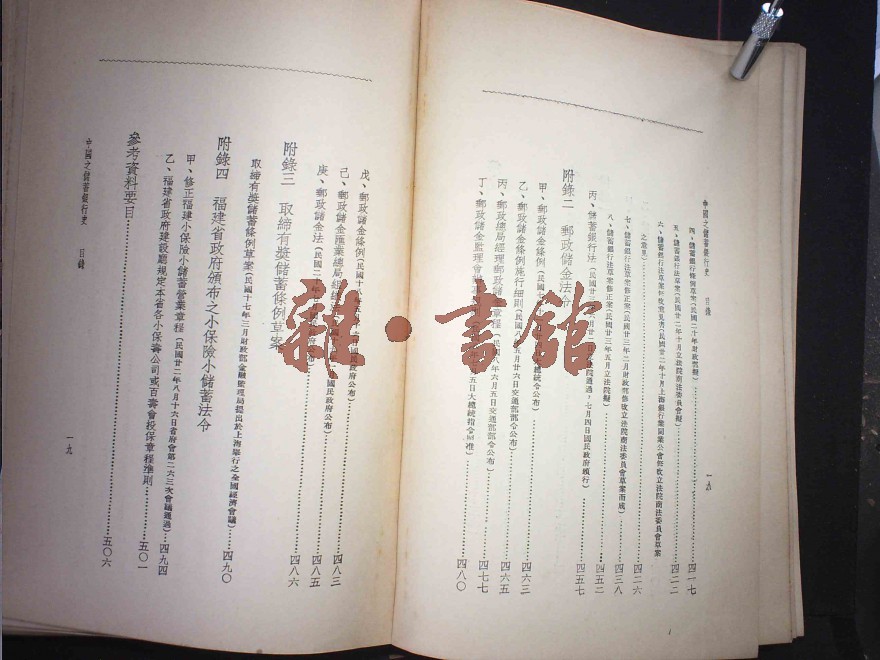 中國之儲蓄銀行史　目錄
四、儲蓄銀行條例草案(民國二十年財政部擬)……四一七
五、儲蓄銀行法草案(民國廿二年十月立法院商法委員會擬)……四二二
六、儲蓄銀行法草案意見書(民國廿二年十月上海銀行業同業公會修改立法院商法委員會草案
之意見)……四二六
七、儲蓄銀行法草案修正案(民國廿三年二月財政部修改立法院商法委員會草案而成)……四三八
八、儲蓄銀行法草案修正案(民國廿三年五月立法院擬)……四五二
丙、儲蓄銀行法(民國廿三 院通過，七月四日國民政府頒行)……四五七
附錄二　郵政儲金法令
甲、郵政儲金條例(民國 大總統令公布)……四六三
乙、郵政儲金條例施行細則(民國 五月廿六日交通部部令公布)……四六五
丙、郵政總局經理郵政儲 章程(民國八年六月五日交通部部令公布)……四七七
丁、郵政儲金監理會 五日大總統指令 准)……四八〇
一九
戊、郵政儲金條例(民國十八年 國民政府公布)……四八三
己、郵政儲金匯業總局組織 國民政府公布)……四八五
庚、郵政儲金法(民國二十年 公布)……四八五
附錄三　取締有獎儲蓄條例草案……四八六
取締有獎儲蓄條例草案(民國十七年三月財政部金融監理局提出於上海舉行之全國經濟會議)……四九〇
附錄四　福建省政府頒布之小保險小儲蓄法令
甲、修正福建小保險小儲蓄營業章程(民國廿二年八月十六日省府會第二六三次會議通過)……四九四
乙、福建省政府建設廳規定本省各小保壽公司或百壽會投保章程準則……五〇一
參考資料要目……五〇六
中國之儲蓄銀行史　目錄
一九
雜·書館